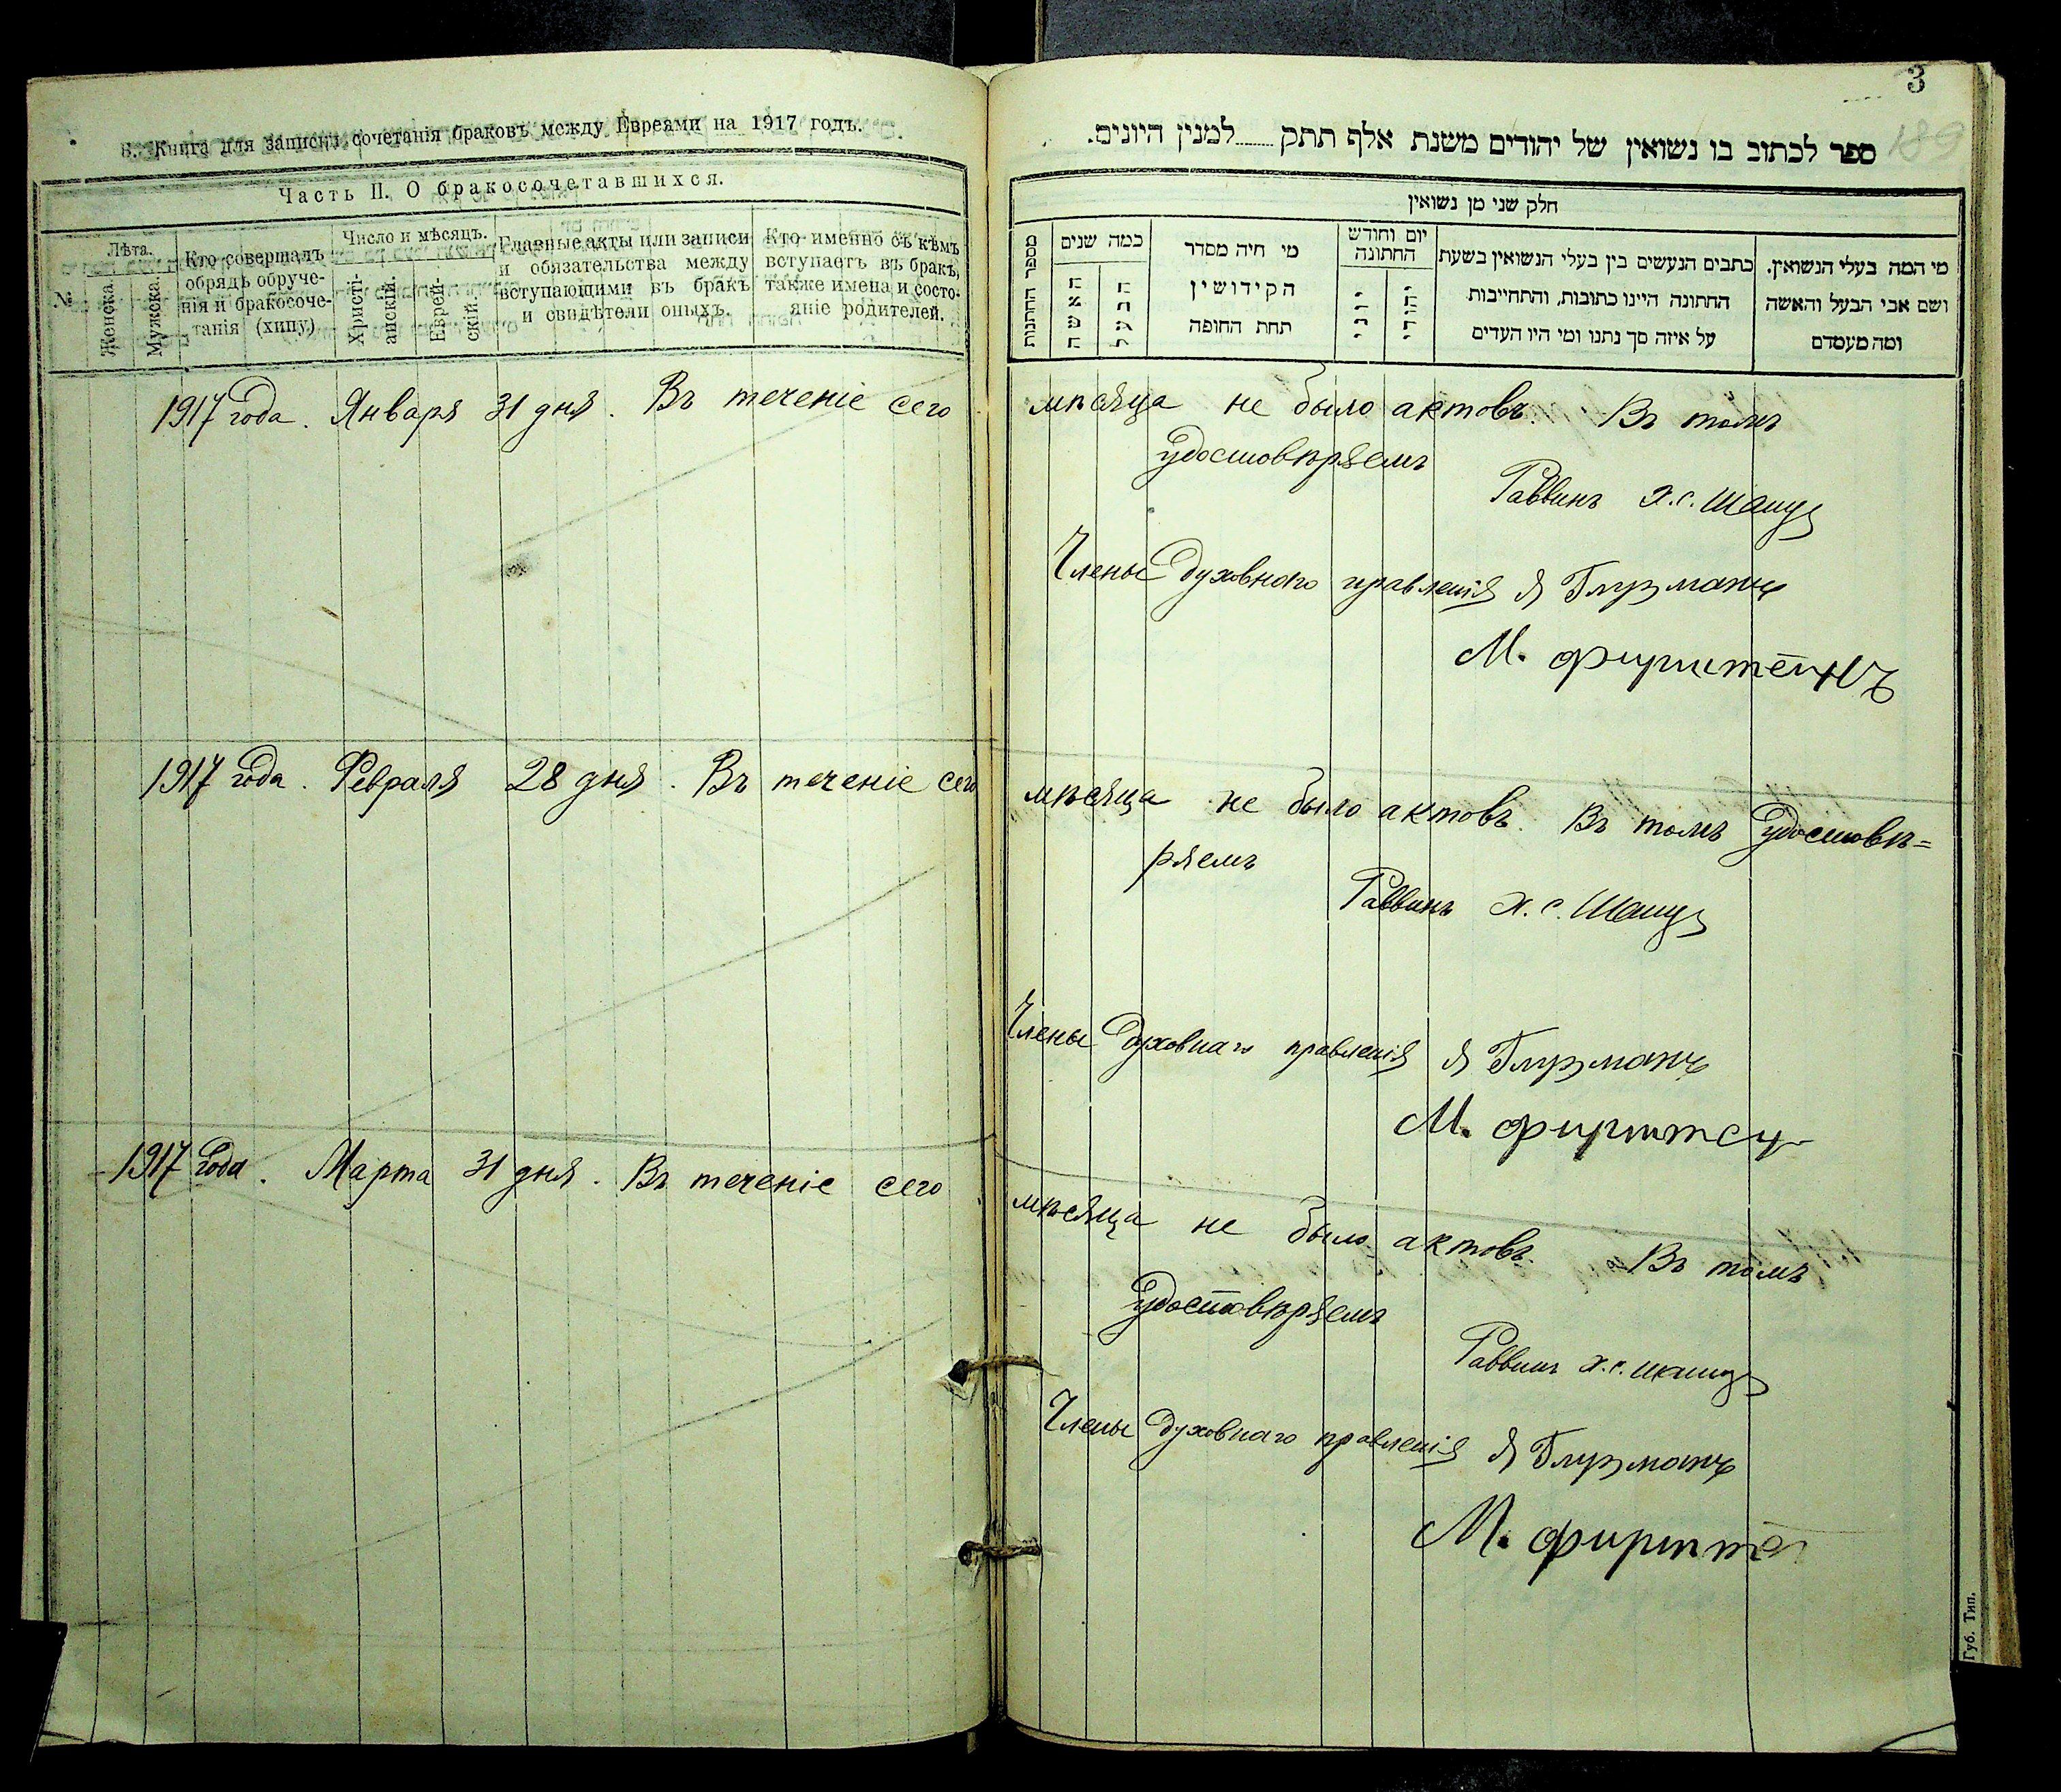 Б. Книга для записки сочетанія браковъ между Евреями на 1917 годъ.
Часть II. О бракосочетавшихся.
№
Лѣта.
Женска.
Мужска.
Кто совершалъ
обрядъ обруче-
нія и бракосоче-
танія (хипу)
Число и мѣсяцъ.
Христі-
анскій.
Еврей-
скій.
Главные акты или записи
и обязательства между
вступающими въ бракъ
и свидѣтели оныхъ.
Кто именно съ кѣмъ
вступаетъ въ бракъ,
также имена и состо-
яніе родителей.
1917 года. Января 31 дня. Въ теченіе сего
1917 года. Февраля 28 дня. Въ теченіе сего
1917 года. Марта 31 дня. Въ теченіе сего
3
ספר לכתוב בו נשואין של יהודים משנת אלף תתק למנין היונים.
חלק שני מן נשואין
מי המה בעלי הנשואין.
ושם אבי הבעל והאשה
ומה מעמדם
כתבים הנעשים בין בעלי הנשואין בשעת
החתונה היינו כתובות, והתחייבות
על איזה סך נתנו ומי היו העדים
יום וחודש
החתונה
יהודי
יוני
מי חיה מסדר
הקידושין
תחת החופה
כמה שנים
הבעל
האשה
מספר החתנות
мѣсяца не было актовъ. Въ томъ
удостовѣряемъ
Раввинъ Х.С.
Члены Духовнаго правленія Я Глузманъ
М. Фирштейнъ
мѣсяца не было актовъ. Въ томъ удостовѣ=
ряемъ
Раввинъ Х.С.
Члены Духовнаго правленія Я Глузманъ
М.
мѣсяца не было актовъ. Въ томъ
удостовѣряемъ
Раввинъ Х.С.
Члены Духовнаго правленія Я Глузманъ
М.
Губ. Тип.